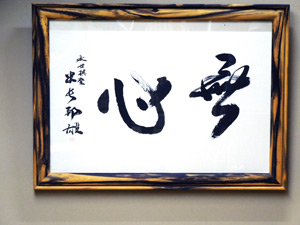 無心
永世棋聖
米長邦雄